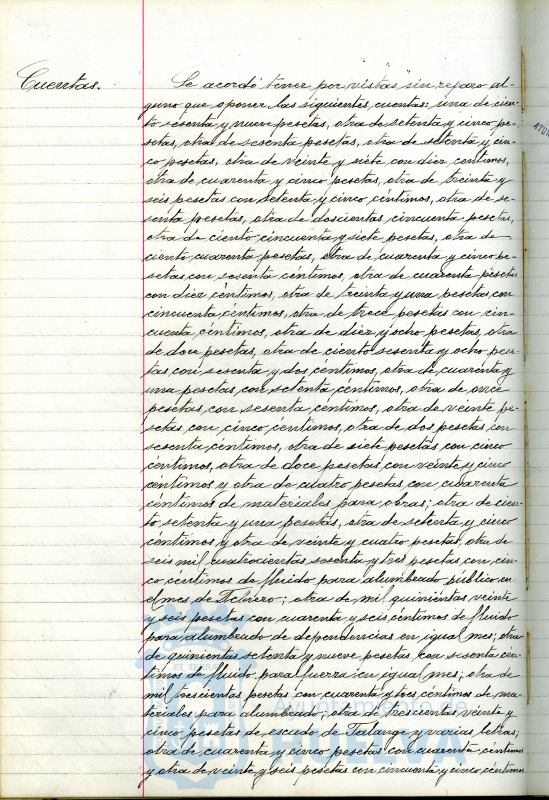 Cuentas.
Se acordó tener por vistas sin reparo al-
guno que oponer las siguientes cuentas: una de cien-
to sesenta y nueve pesetas, otra de setenta y cinco pe-
setas, otra de sesenta pesetas, otra de setenta y cin-
co pesetas, otra de veinte y siete con diez céntimos,
otra de cuarenta y cinco pesetas, otra de treinta y
seis pesetas con setenta y cinco céntimos, otra de se-
senta pesetas, otra de doscientas cincuenta pesetas,
otra de ciento cincuenta y siete pesetas, otra de
ciento cuarenta pesetas, otra de cuarenta y cinco pe-
setas con sesenta céntimos, otra de cuarenta pesetas
con diez céntimos, otra de treinta y una pesetas con
cincuenta céntimos, otra de trece pesetas con cin-
cuenta céntimos, otra de diez y ocho pesetas, otra
de doce pesetas, otra de ciento sesenta y ocho pese-
tas con sesenta y dos céntimos, otra de cuarenta y
una pesetas con setenta céntimos, otra de once
pesetas con sesenta céntimos, otra de veinte pe-
setas con cinco céntimos, otra de dos pesetas con
sesenta céntimos, otra de siete pesetas con cinco
céntimos, otra de doce pesetas con veinte y cinco
céntimos y otra de cuatro pesetas con cuarenta
céntimos de materiales para obras; otra de cien-
to setenta y una pesetas, otra de setenta y cinco
céntimos y otra de veinte y cuatro pesetas, otra de
seis mil cuatrocientas sesenta y tres pesetas con cin-
co céntimos de fluido para alumbrado público en
el mes de Febrero; otra de mil quinientas veinte
y seis pesetas con cuarenta y seis céntimos de fluido
para alumbrado de dependencias en igual mes; otra
de quinientas setenta y nueve pesetas con sesenta cén-
timos de fluido para fuerza en igual mes; otra de
mil trescientas pesetas con cuarenta y tres céntimos de ma-
teriales para alumbrado; otra de trescientas veinte y
cinco pesetas de escudo de Talange y varias letras;
otra de cuarenta y cinco pesetas con cuarenta céntimos
y otra de veinte y seis pesetas con cincuenta y cinco céntimos
Ayuntamiento de
HUELVA